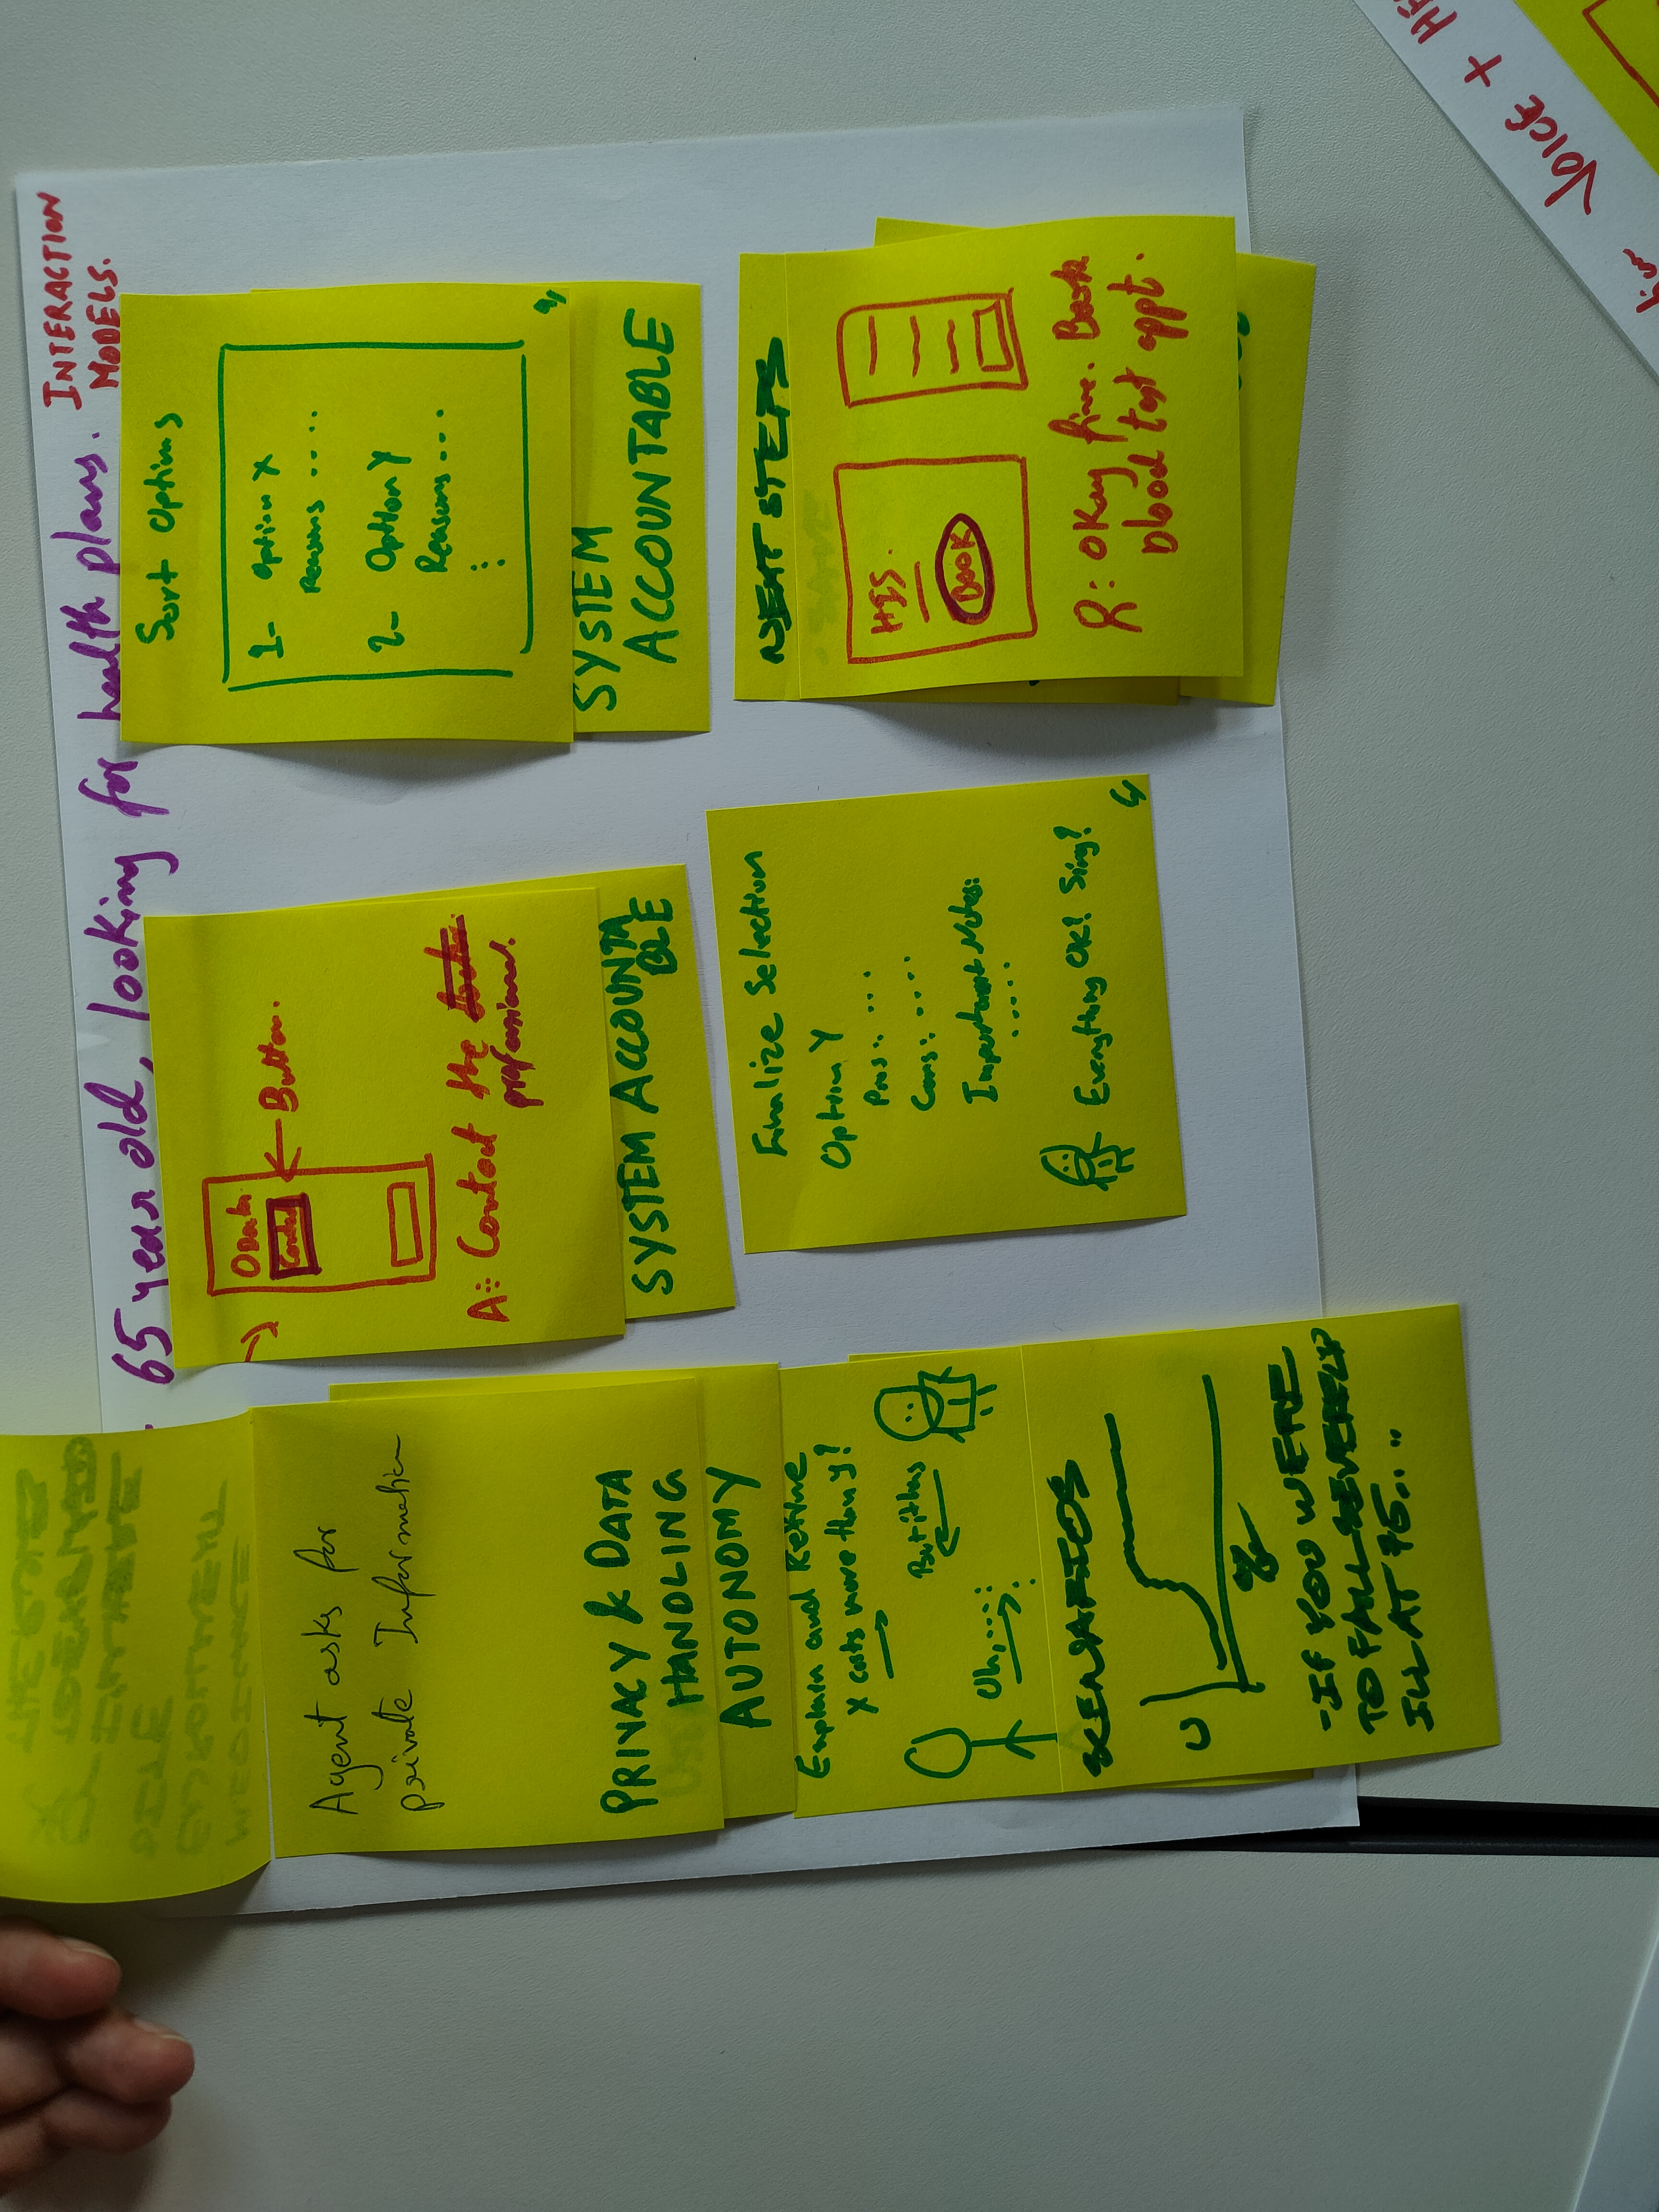 65 year old, looking for health plans.
INTERACTION
MODELS.
Agent asks for
private Information
PRIVACY & DATA
HANDLING
AUTONOMY
Button.
A: Contact the
professional.
SYSTEM ACCOUNTA
BLE
Sort Options
1- Option X
Reasons ....
2- Option Y
Reasons ...
SYSTEM
ACCOUNTABLE
Explain and Refine
X costs more than Y?
But it has
Uh,....
SCENARIOS
U
- IF YOU WERE
TO FALL SEVERELY
ILL AT 75...
Finalize Selection
Option Y
Pros: ...
Cons: ....
Important Notes:
....
Everything OK? Sing?
NEXT STEPS
HIS.
BOOK
R: Okay fine. Book
blood test appt.
VOICE +